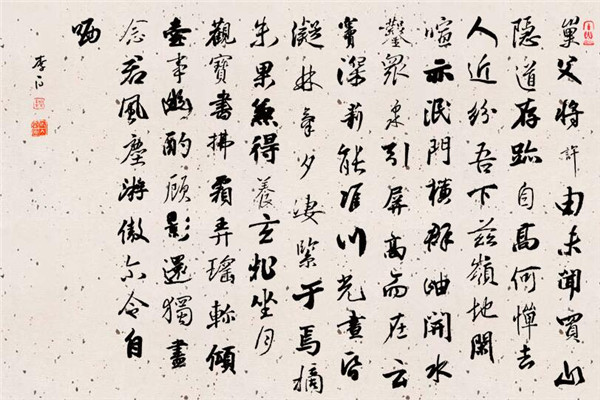 巢父将許由未聞買山
隱道存跡自高何憚去
人近紛吾下茲嶺地閑
喧亦泯門橫群岫開水
鑿眾泉引屏高而在云
竇深莫能准川光晝昏
凝林氣夕淒緊于焉摘
朱果兼得養玄牝坐月
觀寶書拂霜弄瑤軫傾
壺事幽酌顧影還獨盡
念君風塵游傲尔令自
哂